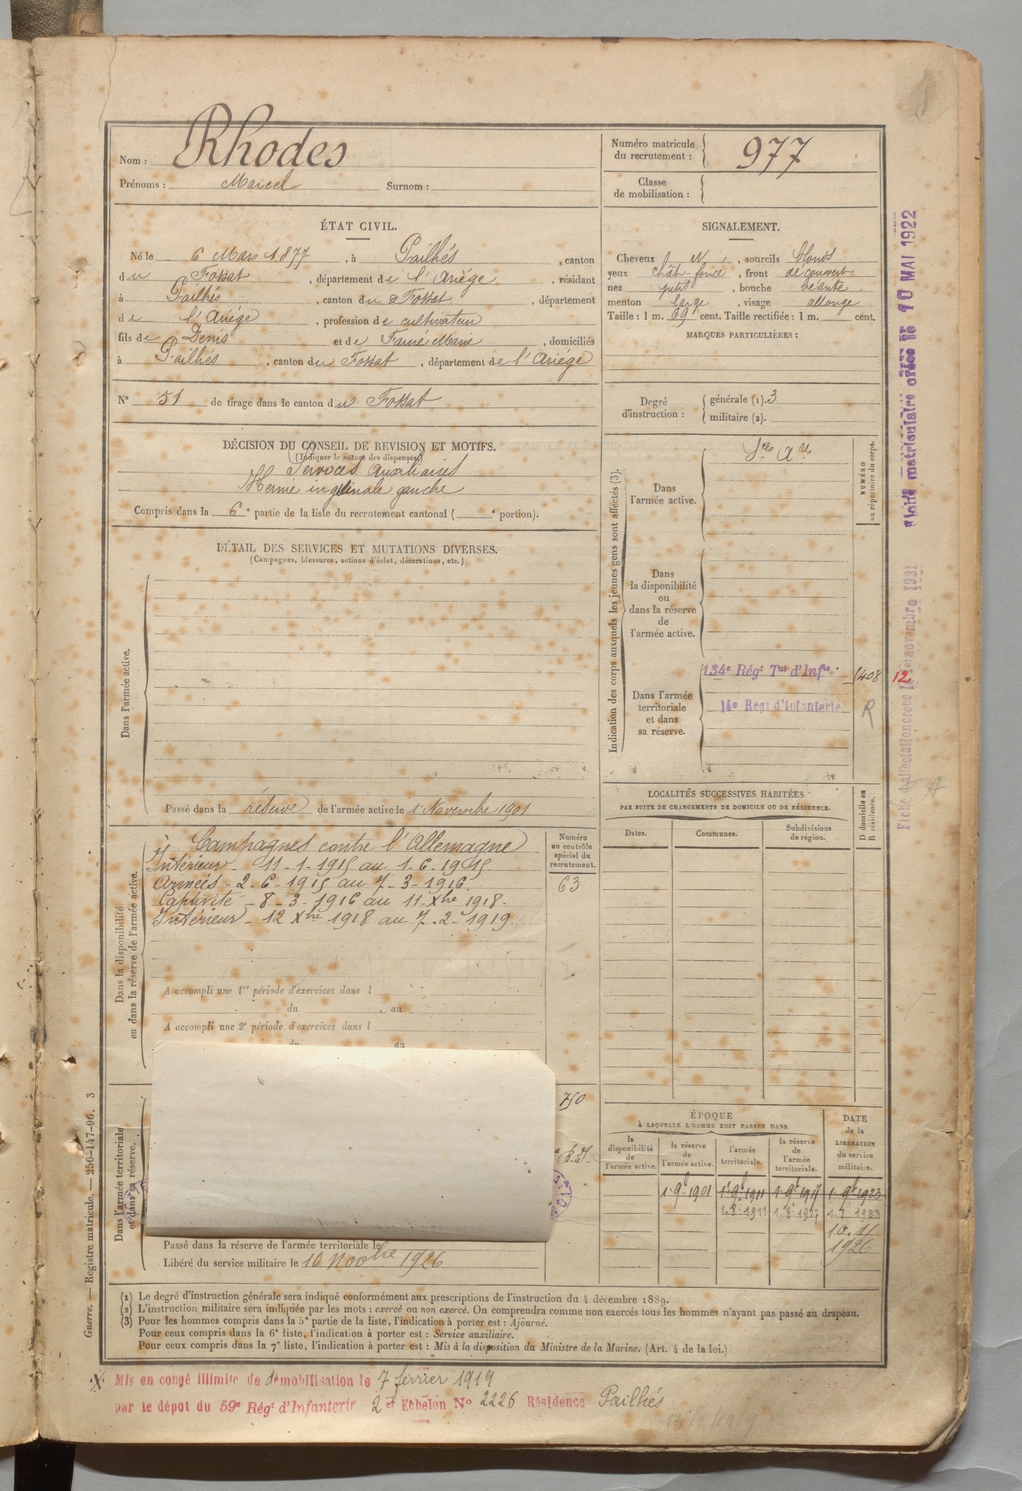 Nom : Rhodes
Prénoms : Marcel Surnom :
Numéro matricule du recrutement : 977
Classe de mobilisation :
ÉTAT CIVIL.
Né le 6 Mars 1877, à Pailhés, canton
du Fossat, département de l'Ariège, résidant
à Pailhés, canton du Fossat, département
de l'Ariége, profession de cultivateur
fils de Denis et de Fauré Marie, domiciliés
à Pailhés, canton du Fossat, département de l'Ariège
N° 51 de tirage dans le canton du Fossat
SIGNALEMENT.
Cheveux , sourcils blonds
yeux chât-foncé, front découvert
nez petit, bouche béante
menton large, visage allongé
Taille : 1 m. 69 cent. Taille rectifiée : 1 m. cent.
MARQUES PARTICULIÈRES :
Degré d'instruction :
générale (1). 3
militaire (2).
DÉCISION DU CONSEIL DE REVISION ET MOTIFS.
(Indiquer la nature des dispenses)
Services Auxiliaires
Hernie inguinale gauche
Compris dans la 6e partie de la liste du recrutement cantonal ( e portion).
DÉTAIL DES SERVICES ET MUTATIONS DIVERSES.
(Campagnes, blessures, actions d'éclat, décorations, etc.)
Dans l'armée active.
Passé dans la réserve de l'armée active le 1 Novembre 1901
Dans la disponibilité
ou dans la réserve de l'armée active.
Campagnes contre l'Allemagne
Intérieur - 11-1-1915 au 1-6-1915
Armées - 2-6-1915 au 7-3-1916.
Captivité - 8-3-1916 au 11 Xbre 1918.
Intérieur - 12 Xbre 1918 au 7-2-1919.
Numéro
au contrôle
spécial du
recrutement.
63
A accompli une 1re période d'exercices dans l
du au
A accompli une 2e période d'exercices dans l
du au
Dans l'armée territoriale
et dans sa réserve.
750
Passé dans la réserve de l'armée territoriale le
Libéré du service militaire le 10 Novbre 1926
Indication des corps auxquels les jeunes gens sont affectés (3).
NUMÉRO
au répertoire du corps.
Dans
l'armée active.
Dans
la disponibilité
ou
dans la réserve
de
l'armée active.
134e Régt Tal d'Infie 1408 12
14e Regt d'Infanterie
R
Dans l'armée
territoriale
et dans
sa réserve.
LOCALITÉS SUCCESSIVES HABITÉES
PAR SUITE DE CHANGEMENTS DE DOMICILE OU DE RÉSIDENCE.
Dates. Communes. Subdivisions de région.
D domicile ou
R résidence.
ÉPOQUE
À LAQUELLE L'HOMME DOIT PASSER DANS
la disponibilité de l'armée active.
la réserve de l'armée active.
l'armée territoriale.
la réserve de l'armée territoriale.
DATE de la LIBÉRATION du service militaire.
1 9bre 1901 1 9bre 1911 1 9bre 1917 1 9bre 1923
10.11
1926
(1) Le degré d'instruction générale sera indiqué conformément aux prescriptions de l'instruction du 4 décembre 1889.
(2) L'instruction militaire sera indiquée par les mots : exercé ou non exercé. On comprendra comme non exercés tous les hommes n'ayant pas passé au drapeau.
(3) Pour les hommes compris dans la 5e partie de la liste, l'indication à porter est : Ajourné.
Pour ceux compris dans la 6e liste, l'indication à porter est : Service auxiliaire.
Pour ceux compris dans la 7e liste, l'indication à porter est : Mis à la disposition du Ministre de la Marine. (Art. 4 de la loi.)
Mis en congé illimité de démobilisation le 7 février 1919
par le dépôt du 59e Régt d'Infanterie 2e Echelon No 2226 Résidence Pailhés
Guerre. — Registre matricule. — 256-147-96. 3
Fiche matriculaire créée le 10 MAI 1922